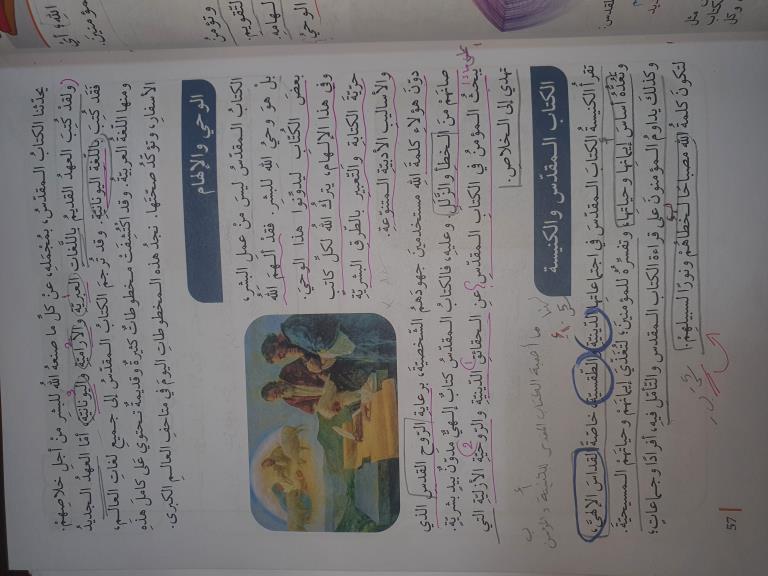 يحدّثنا الكتاب المقدّس، بمُجمَلِهِ، عن كلّ ما صنعهُ اللهُ للبشر من أجلِ خلاصِهِم.
(ولقد كُتِبَ العهد القديمُ باللّغات العبريّة والآراميّة واليونانيّة، أمّا العهدُ الجديدُ
فَقَد كُتِبَ باللّغة اليونانيّة. وقد تُرجِمَ الكتابُ المقدّسُ إلى جميع لغات العالم،
ومنها اللغة العربيّة. وقد اكتُشفَت مخطوطاتٌ كثيرةٌ وقديمةٌ تحتوي على كاملَ هذهِ
الأسفار، وتؤكّدُ صحّتها. نجدُ هذه المخطوطاتِ اليومَ في متاحفِ العالمِ الكبرى.
الوحي والإلهام
الكتابُ المقدّسُ ليسَ من عملِ البشرِ،
بل هوَ وحيُ اللهِ للبشر. فقد ألهمَ اللهُ
بعضَ الكتّاب ليدوّنوا هذا الوحيَ.
وفي هذا الإلهام، يتركُ اللهُ لكلّ كاتبٍ
حرّيّةَ الكتابة والتعبيرِ بالطّرقِ البشريّةِ
والأساليبِ الأدبيّةِ المتنوّعةِ.
دوّنَ هؤلاءِ كلمةَ اللهِ مستخدمينَ جهودَهمُ الشخصيّة، برعايةِ الرّوحِ القدسِ الذي
صانَهُم منَ الخطأِ والزّلل. وعليهِ، فالكتابُ المقدّسُ كتابٌ إلهيٌّ مدوّنٌ بيدٍ بشريّةٍ.
يبحثُ المؤمنُ في الكتابِ المقدّسِ عنِ الحقائقِ الدّينيّةِ والرّوحيّةِ الأزليّةِ التي
تهدي إلى الخلاص.
الكتاب المقدّس والكنيسة
ما أهمية الكتاب المقدس للكنيسة والمؤمن
تقرأُ الكنيسةُ الكتابَ المقدّسَ في اجتماعاتِها الدّينيّةِ والطّقسيّةِ، خاصّةً القدّاسَ الإلهيَّ،
وتعُدُّهُ أساسَ إيمانِها وحياتِها، وتفسّرُهُ للمؤمنينَ؛ لتُغذّيَ إيمانَهُم وحياتَهُمُ المسيحيّةَ.
وكذلكَ يداومُ المؤمنونَ على قراءةِ الكتابِ المقدّسِ والتأمّلِ فيهِ، أفرادًا وجماعاتٍ؛
لتكونَ كلمةُ اللهِ مصباحًا لخطاهُم ونورًا لسبيلِهِم.
57